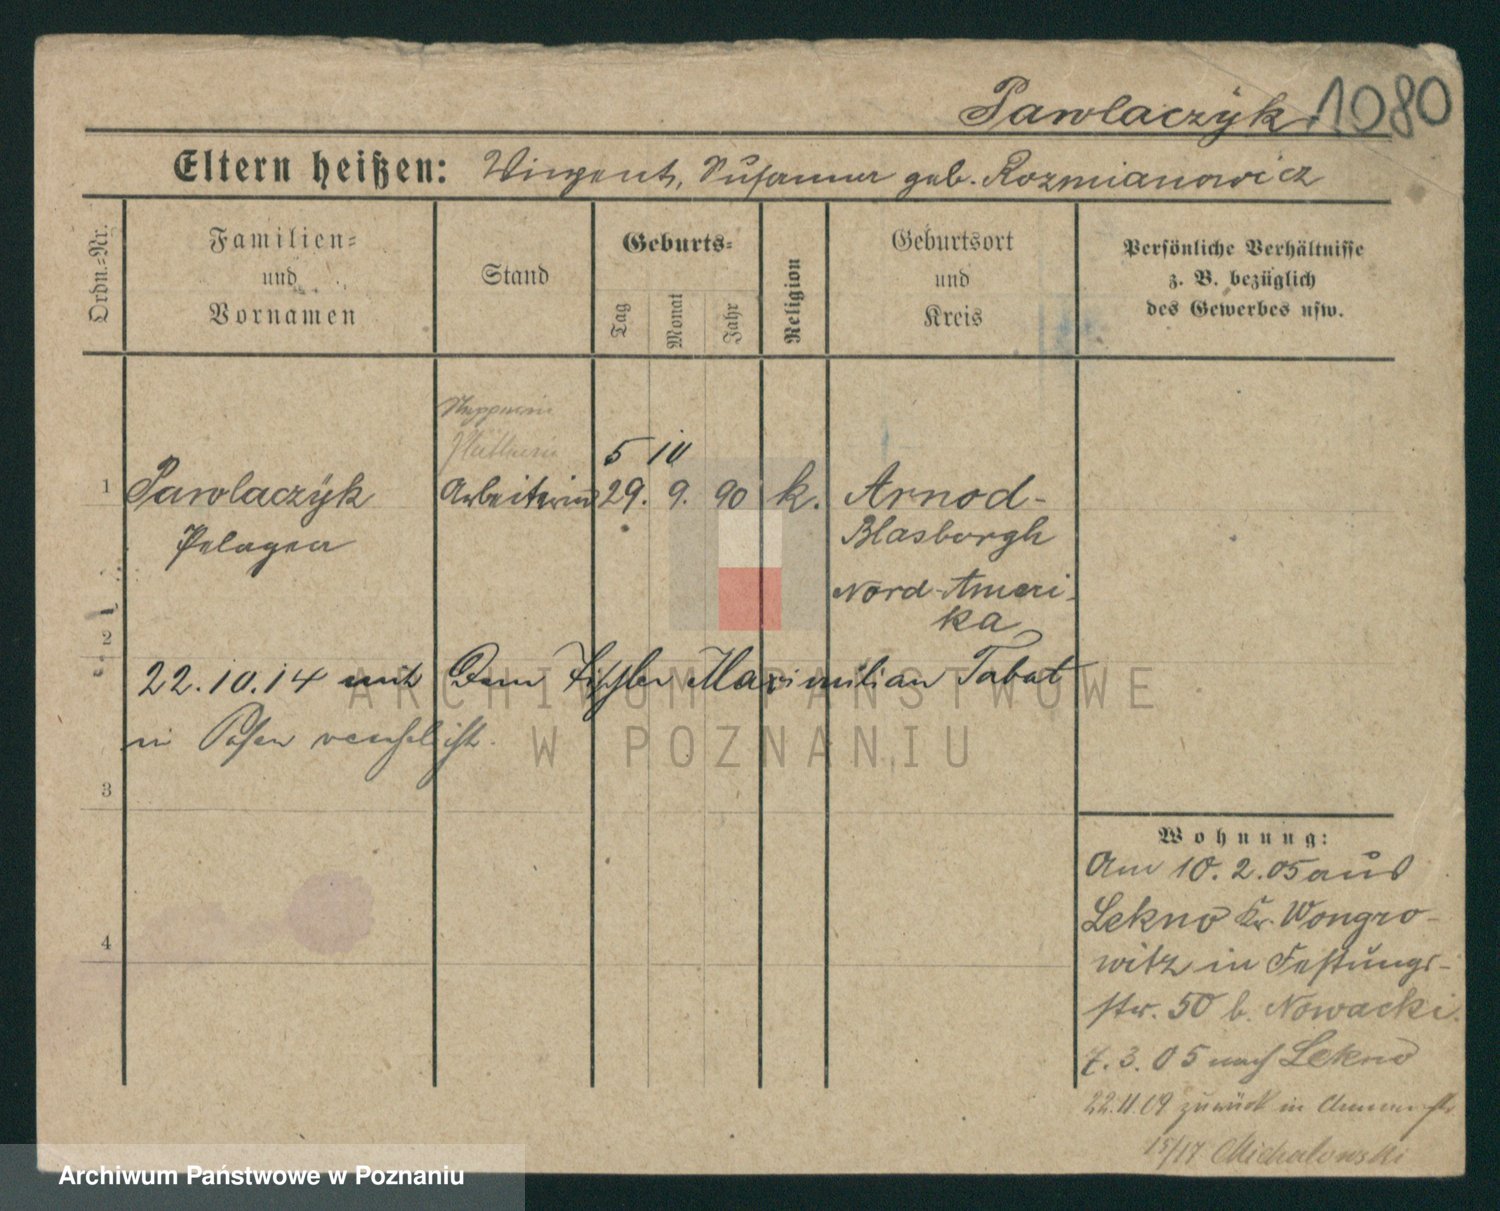 Pawlaczyk 1080
Eltern heißen: Vinzent, Susanna geb. Rozmianowicz
Ordn.-Nr.
Familien-
und
Vornamen
Stand
Geburts-
Tag
Monat
Jahr
Religion
Geburtsort
und
Kreis
Persönliche Verhältnisse
z. B. bezüglich
des Gewerbes usw.
Plätterin
5 10
1 Pawlaczyk Arbeiterin 29. 9. 90 k. Arnod-
Pelagia Blasborgh
Nord-Ameri-
ka
2
22.10.14 mit dem Tischler Maximilian Tabat
in Posen verehel. ist.
3
4
Wohnung:
Am 10. 2. 05 aus
Lekno Kr. Wongro-
witz in Festungs-
str. 50 b. Nowacki.
7. 3. 05 nach Lekno
22.11.09 zurück in str.
15/17 Michalowski
ARCHIWUM PAŃSTWOWE
W POZNANIU
Archiwum Państwowe w Poznaniu